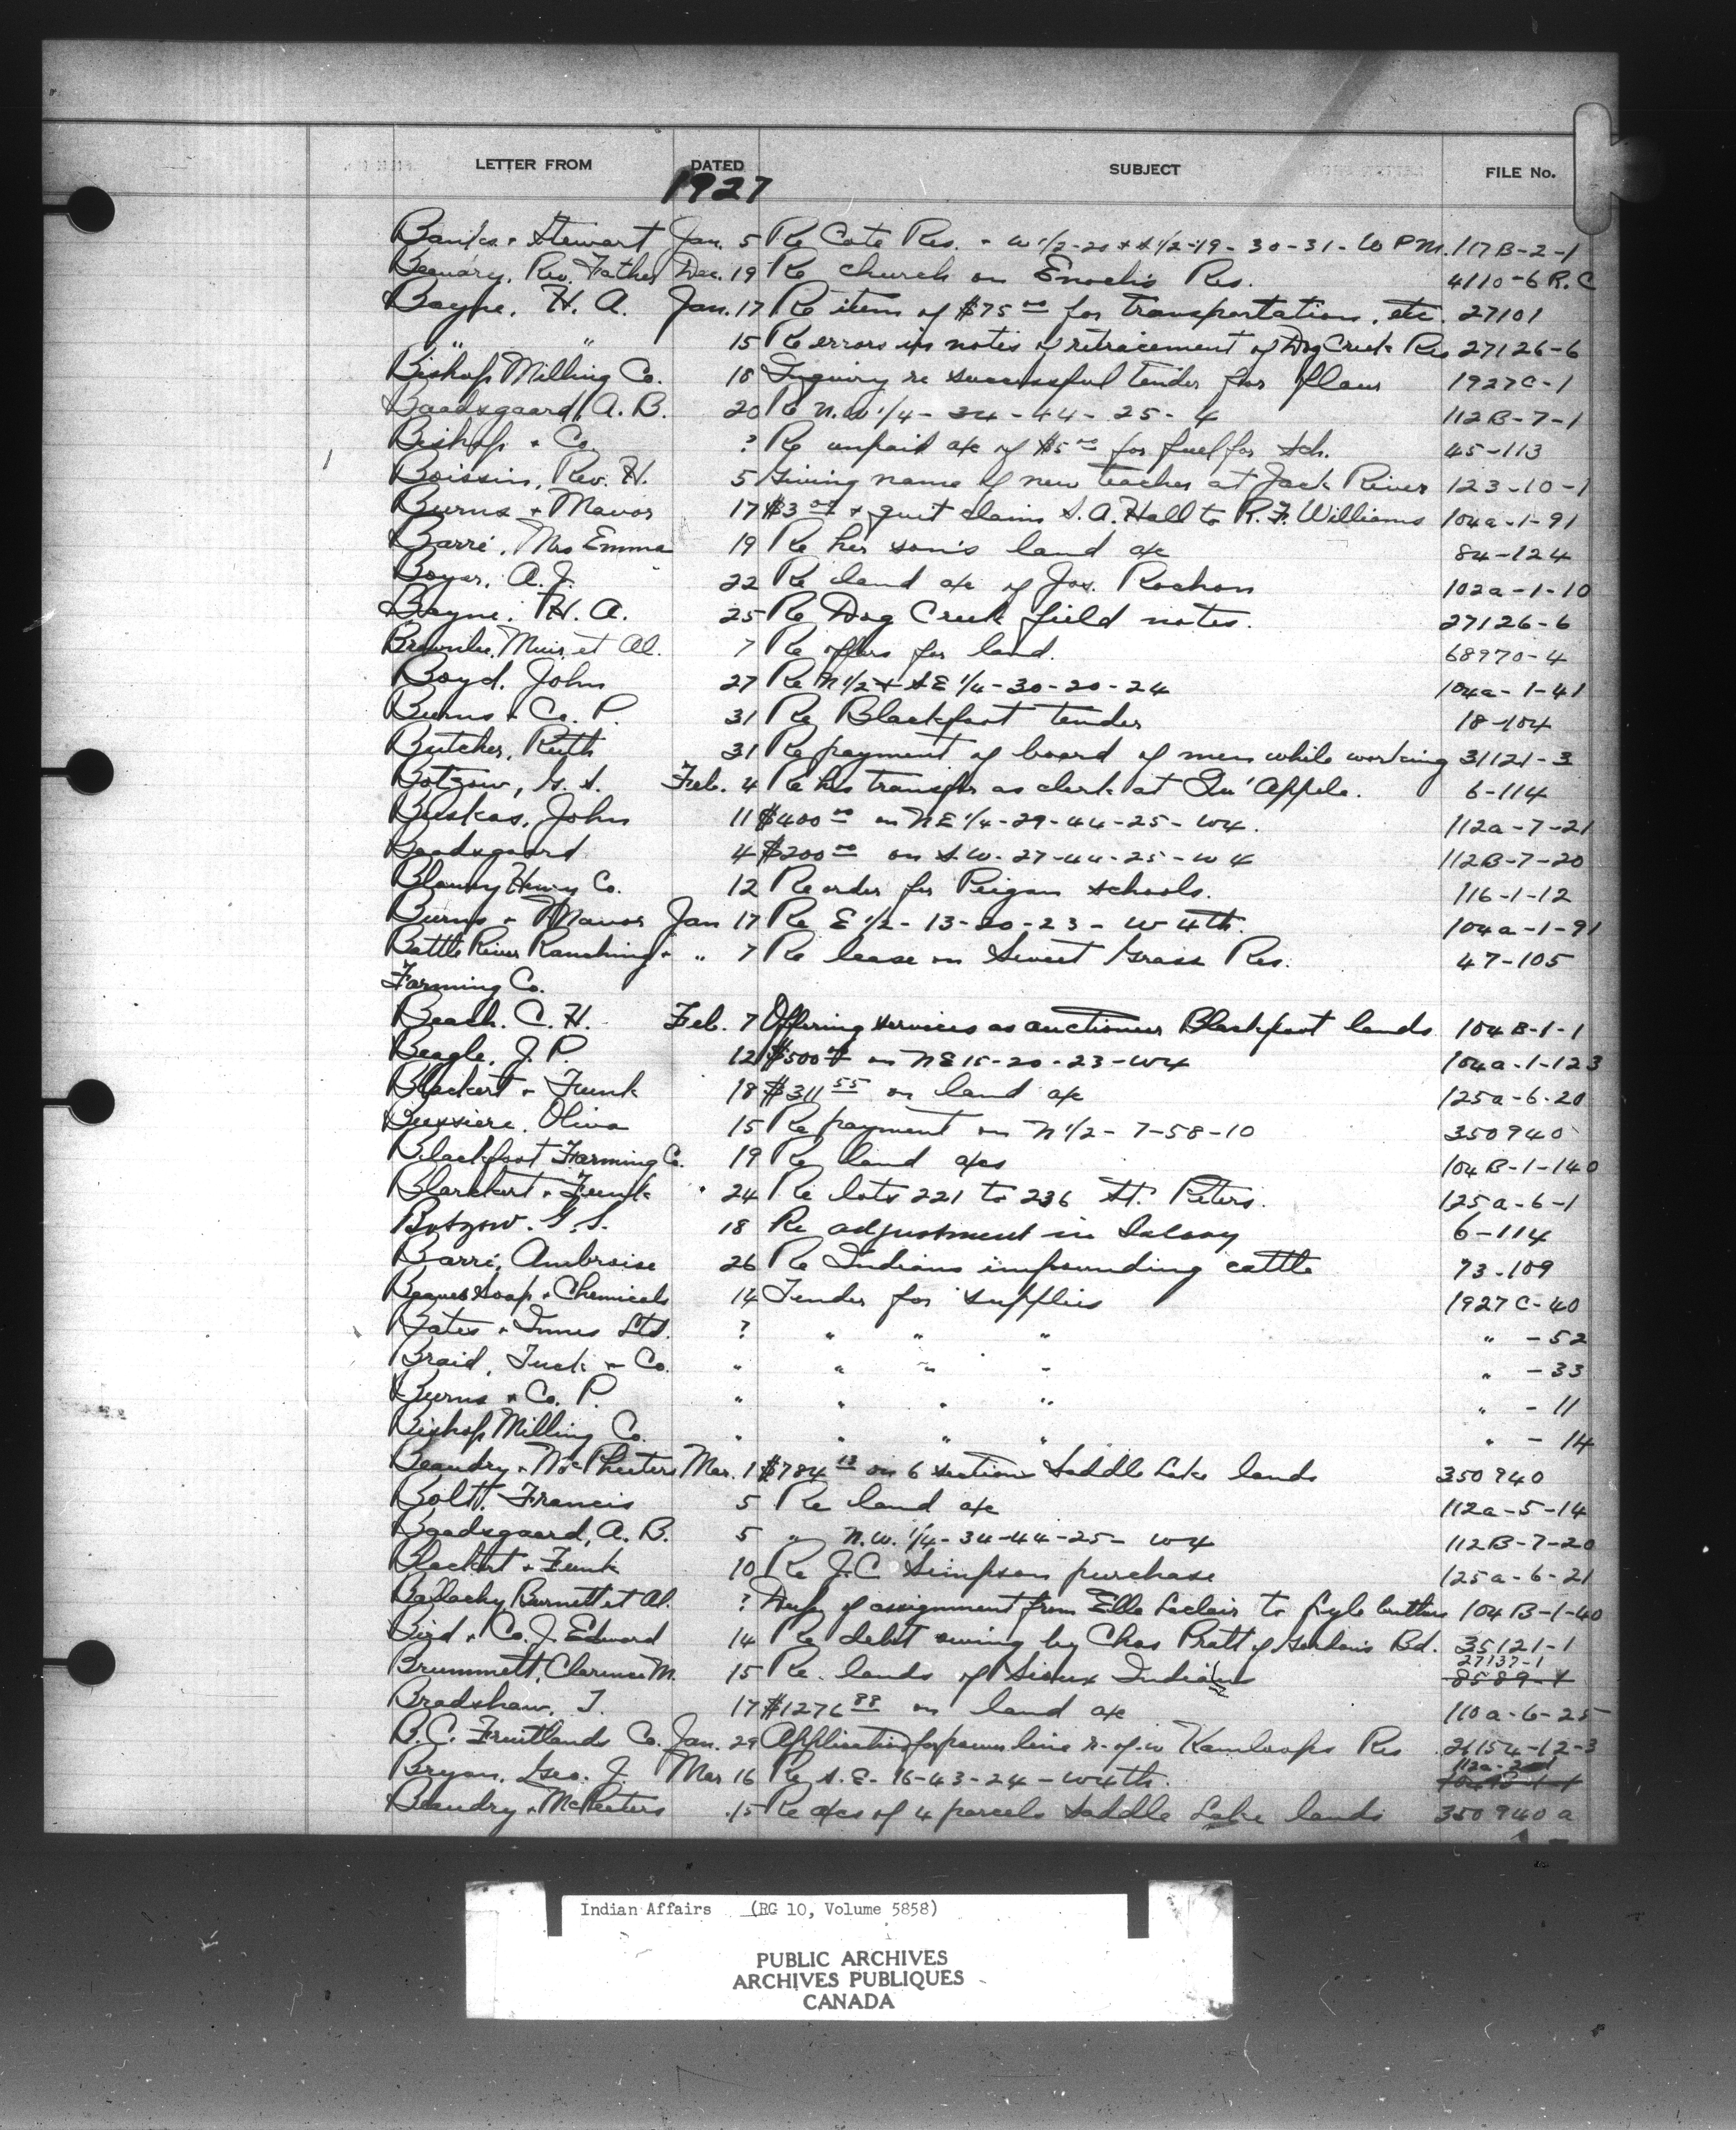 LETTER FROM DATED SUBJECT FILE No.
1927
Banks + Stewart Jan. 5 Re Cote Res. - W 1/2-20 + S 1/2-19-30-31-W P M. 117B-2-1
Rev. Father Dec. 19 Re church on Enoch's Res. 4110-6 R.C
Bayne, H. A. Jan. 17 Re item of $75 00 for transportation, etc. 27101
" " 15 Re errors in notes of retracement of Dog Creek Res 27126-6
Bishop Milling Co. 18 Inquiry re successful tender for flour 1927C-1
Baadsgaard, A. B. 20 Re N.W 1/4-34-44-25-4 112B-7-1
Bishop + Co ? Re unpaid a/c of $5 00 for fuel for Sch. 45-113
Boissin, Rev. H. 5 Giving name of new teacher at Jack River 123-10-1
Burns + Mavor 17 $3 00 + quit claim S. A. Hall to R. F. Williams 104a-1-91
Barré, Mrs Emma 19 Re her son's land a/c 84-124
Boyer, A. J. 22 Re land a/c of Jos. Rochon 102a-1-10
Bayne, H. A. 25 Re Dog Creek field notes. 27126-6
Brownlee, Muir, et Al. 7 Re offers for land. 68970-4
Boyd, John 27 Re N 1/2 + S E 1/4-30-20-24 104a-1-41
Burns + Co. P. 31 Re Blackfoot tender 18-104
Butcher, Ruth 31 Re payment of board of men while working 31121-3
Botzow, G. S. Feb. 4 Re his transfer as clerk at Qu'Appelle. 6-114
Buskas, John 11 $400 00 on N E 1/4-29-44-25-W4. 112a-7-21
Baadsgaard 4 $200 00 on S.W. 27-44-25-W 4 112B-7-20
Blauvy Henry Co. 12 Re order for Peigan schools. 116-1-12
Burns + Mavor Jan 17 Re E 1/2-13-20-23-W 4th. 104a-1-91
Battle River Ranching + " 7 Re lease on Sweet Grass Res. 47-105
Farming Co.
Beach. C. H. Feb. 7 Offering services as auctioneer Blackfoot lands 104B-1-1
Beagle, J. P. 12 $500 00 on N E 15-20-23-W4 104a-1-123
Blackert + Funk 18 $311 55 on land a/c 125a-6-20
Bussiere, Oliva 15 Re payment on N 1/2-7-58-10 350940
Blackfoot Farming Co. 19 Re land a/cs 104B-1-140
Blackert + Funk 24 Re lots 221 to 236 St. Peters. 125a-6-1
Botzow. G. S. 18 Re adjustment in Salary 6-114
Barré, Ambroise 26 Re Indians impounding cattle 73-109
Beaver Soap + Chemicals 14 Tender for supplies 1927C-40
Bates + Innes Ltd. ? " " " " -52
Braid, Tuck + Co. " " " " " -33
Burns + Co. P. " " " " " -11
Bishop Milling Co. " " " " " -14
Beaudry + McPheeters Mar. 1 $784 13 on 6 sections Saddle Lake lands 350940
Bolt, Francis 5 Re land a/c 112a-5-14
Baadsgaard, A. B. 5 " N.W. 1/4-34-44-25-W4 112B-7-20
Blackert + Funk 10 Re J. C. Simpson purchase 125a-6-21
Ballachy Burnett et Al. ? Dup. of assignment from Ella Leclair to Lyle 104B-1-40
Bird + Co. J. Edward 14 Re debt owing by Chas Pratt of Gordon's Bd. 35121-1
27137-1
Brummett, Clarence M. 15 Re. lands of Sioux Indians 8589-4
Bradshaw, T. 17 $1276 88 on land a/c 110a-6-25
B. C. Fruitlands Co. Jan. 29 Application for power line r-of-w Kamloops Res 21154-12-3
Bryan, Geo. J. Mar 16 Re S. E. 16-43-24-W4th.
Beaudry + McPheeters 15 Re a/cs of 4 parcels Saddle Lake lands 350940a
Indian Affairs (RG 10, Volume 5858)
PUBLIC ARCHIVES
ARCHIVES PUBLIQUES
CANADA